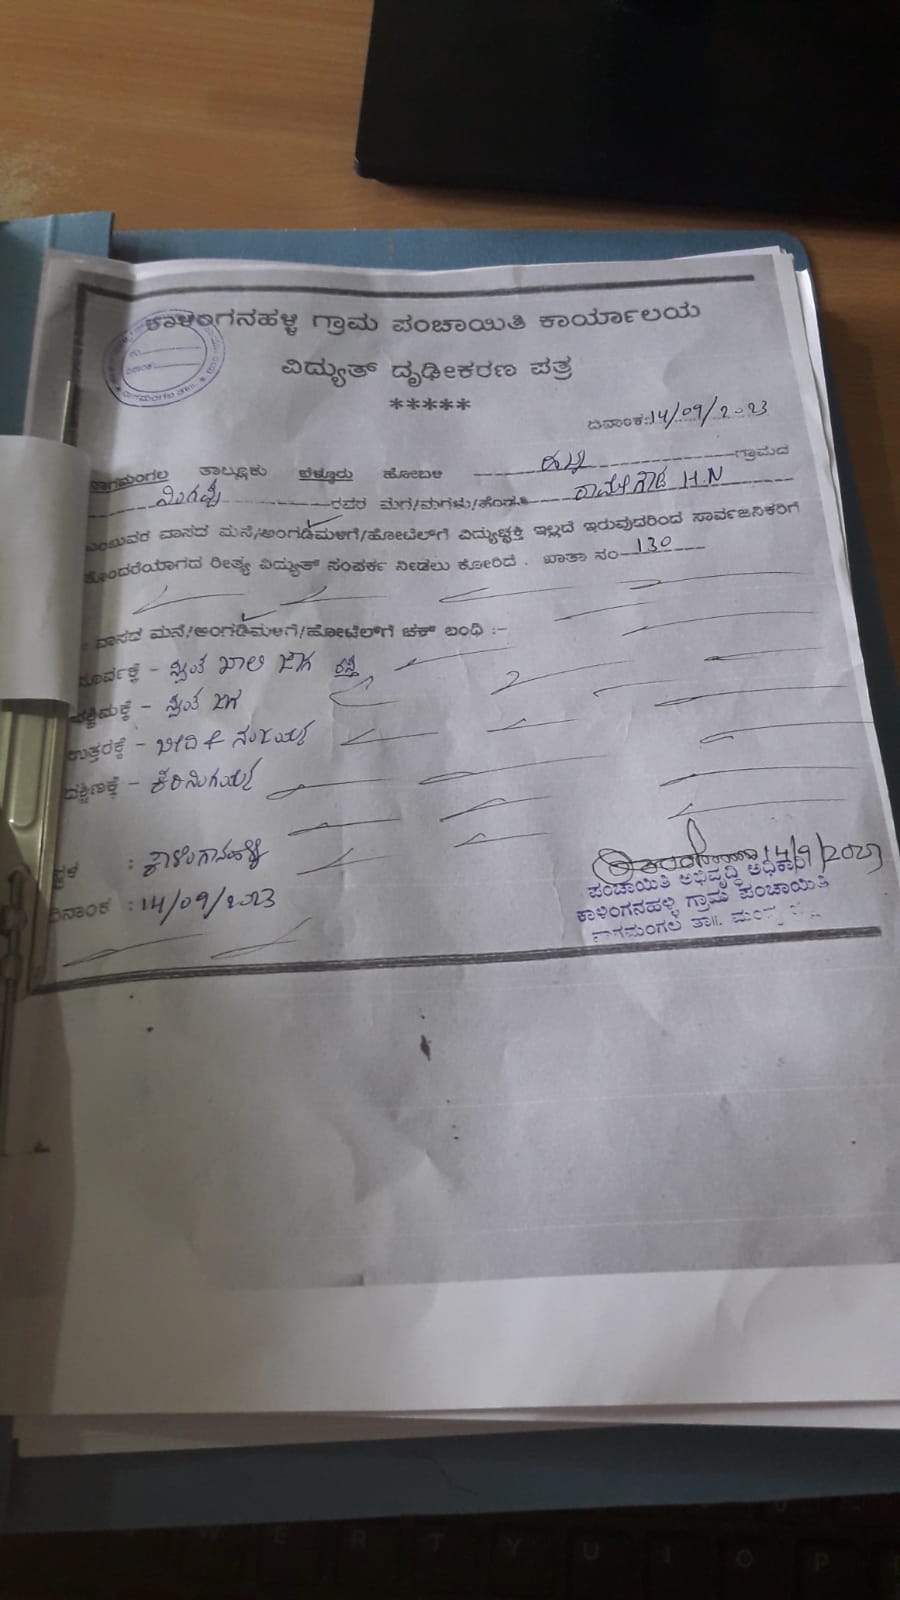 ಕಾಳಿಂಗನಹಳ್ಳಿ ಗ್ರಾಮ ಪಂಚಾಯಿತಿ ಕಾರ್ಯಾಲಯ
ವಿದ್ಯುತ್ ದೃಢೀಕರಣ ಪತ್ರ
*****
ದಿನಾಂಕ: 14/09/2023
ನಾಗಮಂಗಲ ತಾಲ್ಲೂಕು ಬೆಳ್ಳೂರು ಹೋಬಳಿ ಗ್ರಾಮದ
ರವರ ಮಗ/ಮಗಳು/ಹೆಂಡತಿ H.N
ಎಂಬುವರ ವಾಸದ ಮನೆ/ಅಂಗಡಿಮಳಿಗೆ/ಹೋಟೆಲ್‌ಗೆ ವಿದ್ಯುಚ್ಛಕ್ತಿ ಇಲ್ಲದೆ ಇರುವುದರಿಂದ ಸಾರ್ವಜನಿಕರಿಗೆ
ತೊಂದರೆಯಾಗದ ರೀತ್ಯ ವಿದ್ಯುತ್ ಸಂಪರ್ಕ ನೀಡಲು ಕೋರಿದೆ . ಖಾತಾ ನಂ 130
ವಾಸದ ಮನೆ/ಅಂಗಡಿಮಳಿಗೆ/ಹೋಟೆಲ್‌ಗೆ ಚಕ್ ಬಂಧಿ :-
ಪೂರ್ವಕ್ಕೆ – ಸ್ವಂತ ಖಾಲಿ ಜಾಗ ರಸ್ತೆ
ಪಶ್ಚಿಮಕ್ಕೆ – ಸ್ವಂತ ಜಾಗ
ಉತ್ತರಕ್ಕೆ –
ದಕ್ಷಿಣಕ್ಕೆ –
ಸ್ಥಳ : ಕಾಳಿಂಗಾನಹಳ್ಳಿ
ದಿನಾಂಕ : 14/09/2023
14/9/2023
ಪಂಚಾಯಿತಿ ಅಭಿವೃದ್ಧಿ ಅಧಿಕಾರಿ
ಕಾಳಿಂಗನಹಳ್ಳಿ ಗ್ರಾಮ ಪಂಚಾಯಿತಿ
ನಾಗಮಂಗಲ ತಾ||.